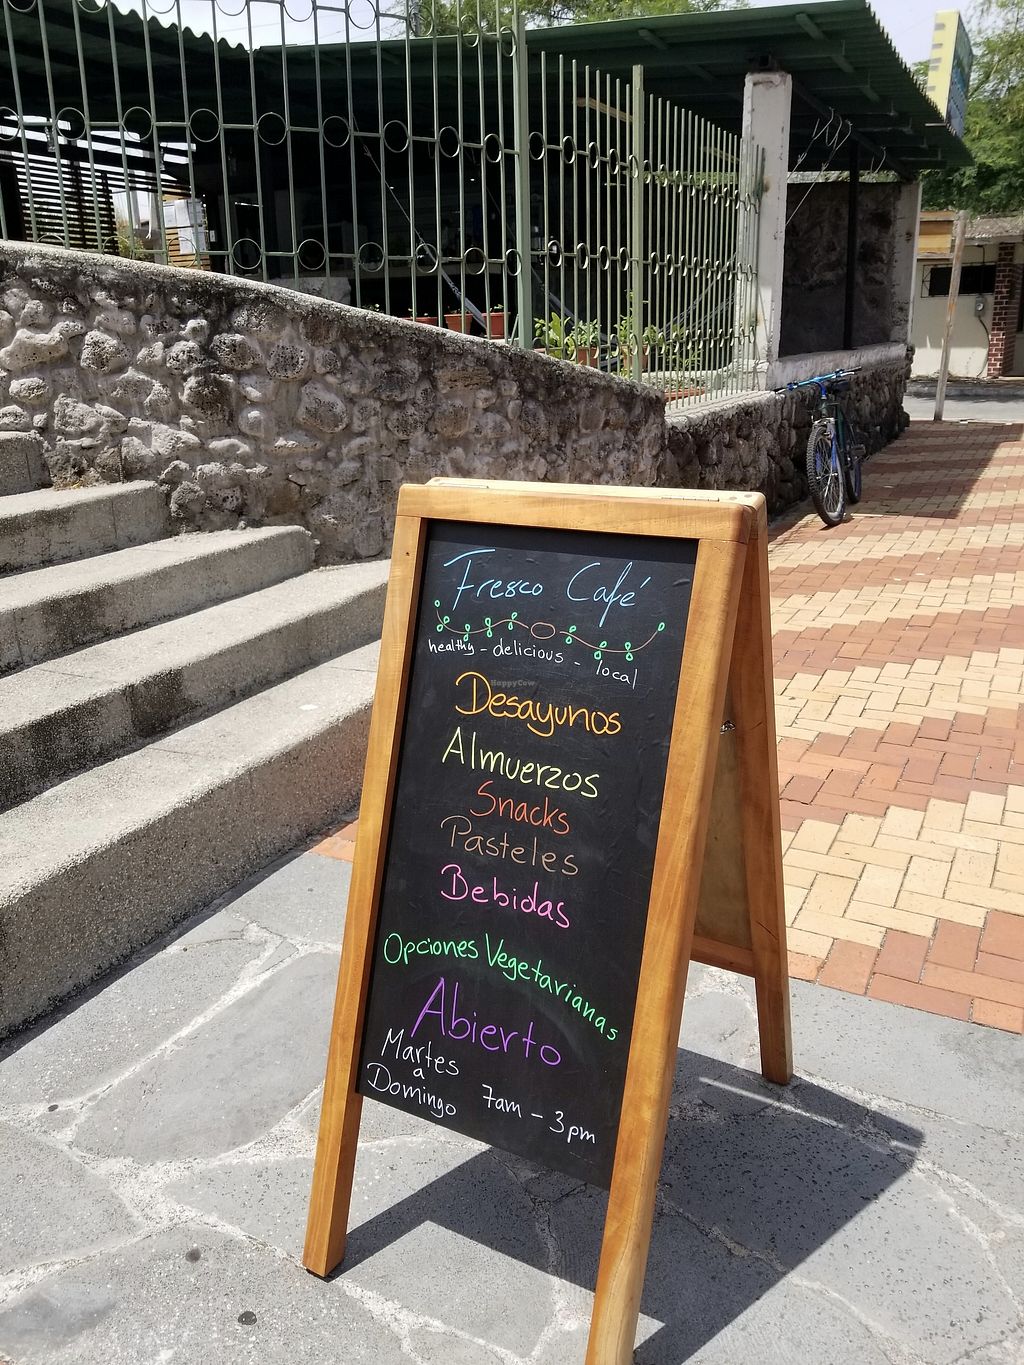 Fresco Café
healthy - delicious - local
HappyCow
Desayunos
Almuerzos
Snacks
Pasteles
Bebidas
Opciones Vegetarianas
Abierto
Martes
a
Domingo 7am - 3pm